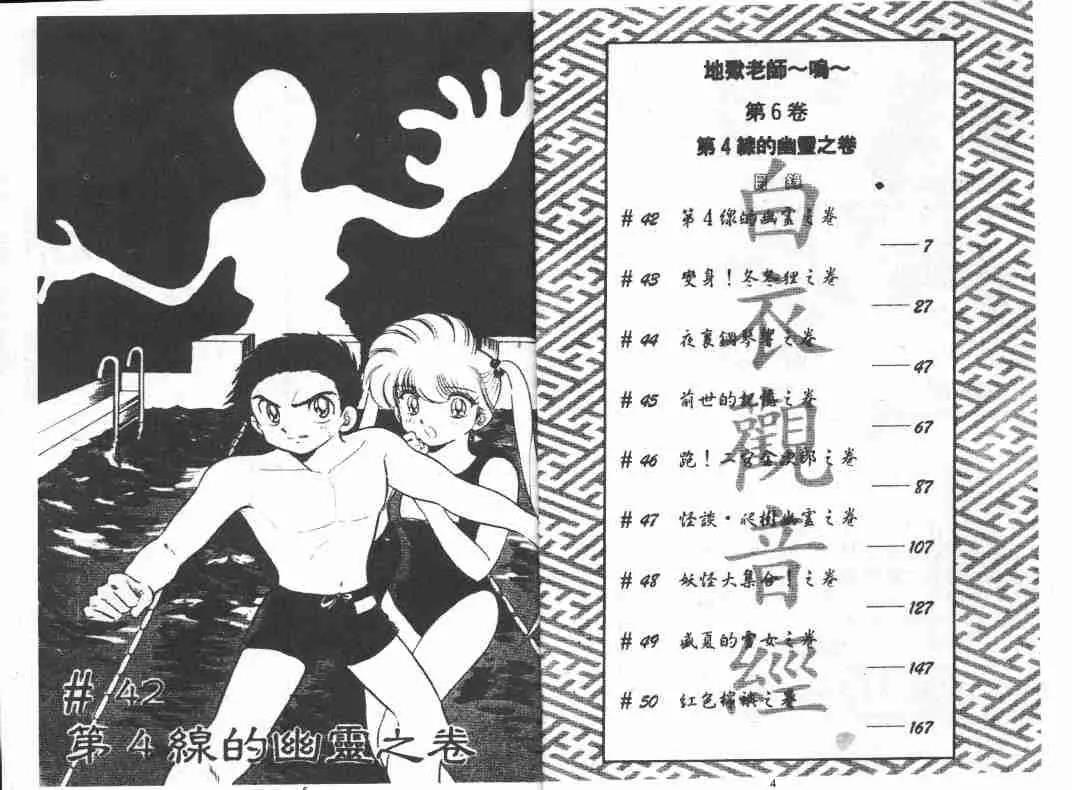 地獄老師~鳴~
第6卷
第4線的幽靈之卷
目錄
#42 第4線的幽靈之卷
7
#43 變身!冬冬狸之卷
27
#44 夜裏鋼琴響之卷
47
#45 前世的記憶之卷
67
#46 跑!二宮金次郎之卷
87
#47 怪談·爬樹幽靈之卷
107
#48 妖怪大集合!之卷
127
#49 盛夏的雪女之卷
147
#50 紅色之卷
167
白衣觀音經
4
#42
第4線的幽靈之卷